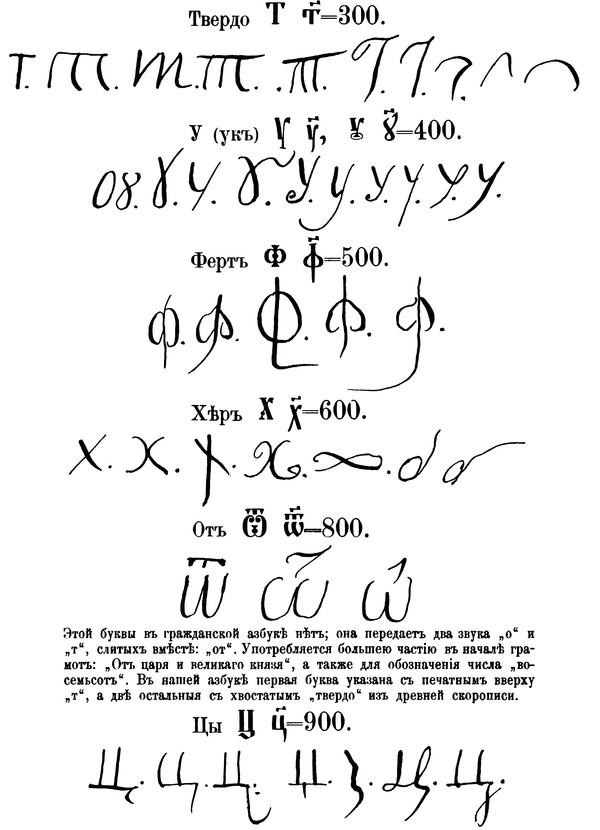 Твердо Т т҃=300.
Т. т. т. т. .т. Т. Т. ?.
У (укъ) Ꙋ у҃, ꙋ҃=400.
08. У. У. У. У. У. У. У. У.
Фертъ Ф ф҃=500.
ф. ф. Ф. ф. ф.
Хѣръ Х х҃=600.
х. х. х. х.
Отъ Ѿ ѿ҃=800.
ѿ
Этой буквы въ гражданской азбукѣ нѣтъ; она передаетъ два звука „о“ и
„т“, слитыхъ вмѣстѣ: „от“. Употребляется большею частію въ началѣ гра-
мотъ: „Отъ царя и великаго князя“, а также для обозначенія числа „во-
семьсотъ“. Въ нашей азбукѣ первая буква указана съ печатнымъ вверху
„т“, а двѣ остальныя съ хвостатымъ „твердо“ изъ древней скорописи.
Цы Ц ц҃=900.
Ц. Ц. Ц. Ц. Ц. Ц.